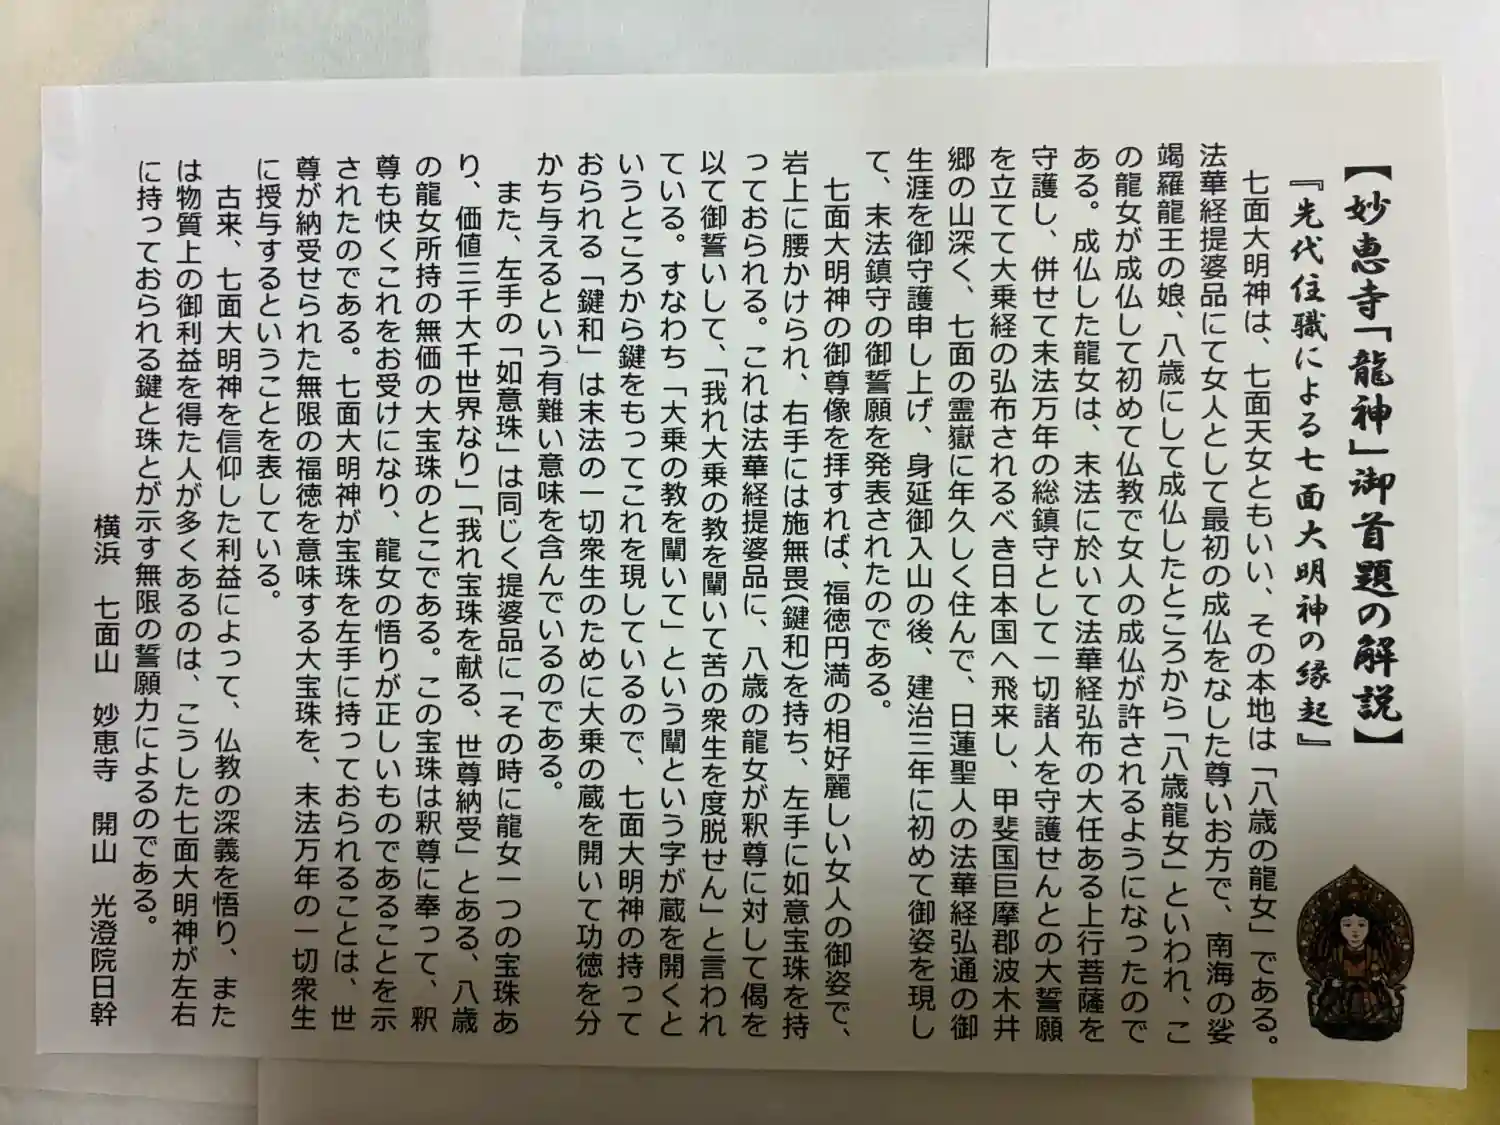 【妙恵寺「龍神」御首題の解説】
『先代住職による七面大明神の縁起』
七面大明神は、七面天女ともいい、その本地は「八歳の龍女」である。
法華経提婆品にて女人として最初の成仏をなした尊いお方で、南海の娑
竭羅龍王の娘、八歳にして成仏したところから「八歳龍女」といわれ、こ
の龍女が成仏して初めて仏教で女人の成仏が許されるようになったので
ある。成仏した龍女は、末法に於いて法華経弘布の大任ある上行菩薩を
守護し、併せて末法万年の総鎮守として一切諸人を守護せんとの大誓願
を立てて大乗経の弘布されるべき日本国へ飛来し、甲斐国巨摩郡波木井
郷の山深く、七面の霊嶽に年久しく住んで、日蓮聖人の法華経弘通の御
生涯を御守護申し上げ、身延御入山の後、建治三年に初めて御姿を現し
て、末法鎮守の御誓願を発表されたのである。
七面大明神の御尊像を拝すれば、福徳円満の相好麗しい女人の御姿で、
岩上に腰かけられ、右手には施無畏(鍵和)を持ち、左手に如意宝珠を持
っておられる。これは法華経提婆品に、八歳の龍女が釈尊に対して偈を
以て御誓いして、「我れ大乗の教を闡いて苦の衆生を度脱せん」と言われ
ている。すなわち「大乗の教を闡いて」という闡という字が蔵を開くと
いうところから鍵をもってこれを現しているので、七面大明神の持って
おられる「鍵和」は末法の一切衆生のために大乗の蔵を開いて功徳を分
かち与えるという有難い意味を含んでいるのである。
また、左手の「如意珠」は同じく提婆品に「その時に龍女一つの宝珠あ
り、価値三千大千世界なり」「我れ宝珠を献る、世尊納受」とある、八歳
の龍女所持の無価の大宝珠のとこである。この宝珠は釈尊に奉って、釈
尊も快くこれをお受けになり、龍女の悟りが正しいものであることを示
されたのである。七面大明神が宝珠を左手に持っておられることは、世
尊が納受せられた無限の福徳を意味する大宝珠を、末法万年の一切衆生
に授与するということを表している。
古来、七面大明神を信仰した利益によって、仏教の深義を悟り、また
は物質上の御利益を得た人が多くあるのは、こうした七面大明神が左右
に持っておられる鍵と珠とが示す無限の誓願力によるのである。
横浜 七面山 妙恵寺 開山 光澄院日幹